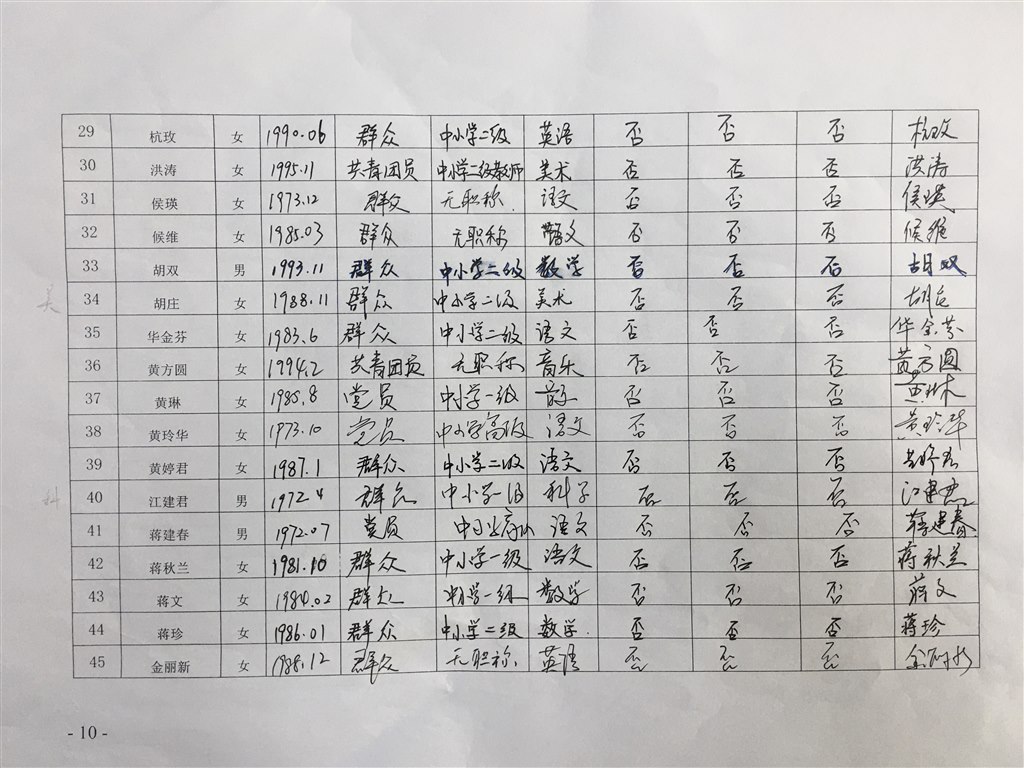 29 杭玫 女 1990.06 群众 中小学二级 英语 否 否 否 杭玫
30 洪涛 女 1995.11 共青团员 中小学二级教师 美术 否 否 否 洪涛
31 侯瑛 女 1973.12 群众 无职称. 语文 否 否 否 侯瑛
32 候维 女 1985.03 群众 无职称 语文 否 否 否 候维
33 胡双 男 1993.11 群众 中小学二级 数学 否 否 否 胡双
美
34 胡庄 女 1988.11 群众 中小学二级 美术 否 否 否 胡庄
35 华金芬 女 1983.6 群众 中小学二级 语文 否 否 否 华金芬
36 黄方圆 女 1994.2 共青团员 无职称 音乐 否 否 否 黄方圆
37 黄琳 女 1985.8 党员 中小学一级 否 否 否 黄琳
38 黄玲华 女 1973.10 党员 中小学高级 语文 否 否 否 黄玲华
39 黄婷君 女 1987.1 群众 中小学二级 语文 否 否 否 黄婷君
科
40 江建君 男 1972.4 群众 中小学一级 科学 否 否 否 江建君
41 蒋建春 男 1972.07 党员 语文 否 否 否 蒋建春
42 蒋秋兰 女 1981.10 群众 中小学一级 语文 否 否 否 蒋秋兰
43 蒋文 女 1984.02 群众 中小学一级 数学 否 否 否 蒋文
44 蒋珍 女 1986.01 群众 中小学二级 数学. 否 否 否 蒋珍
45 金丽新 女 1988.12 群众 无职称. 英语 否 否 否 金丽新
- 10 -